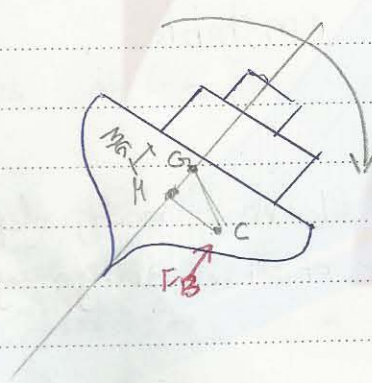 MG
G
M
C
FB